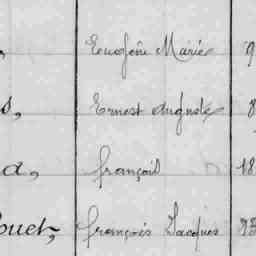 , Eugène Marie 9
s, Ernest Auguste 8
a, françois 18
ouet, françois Jacques 93